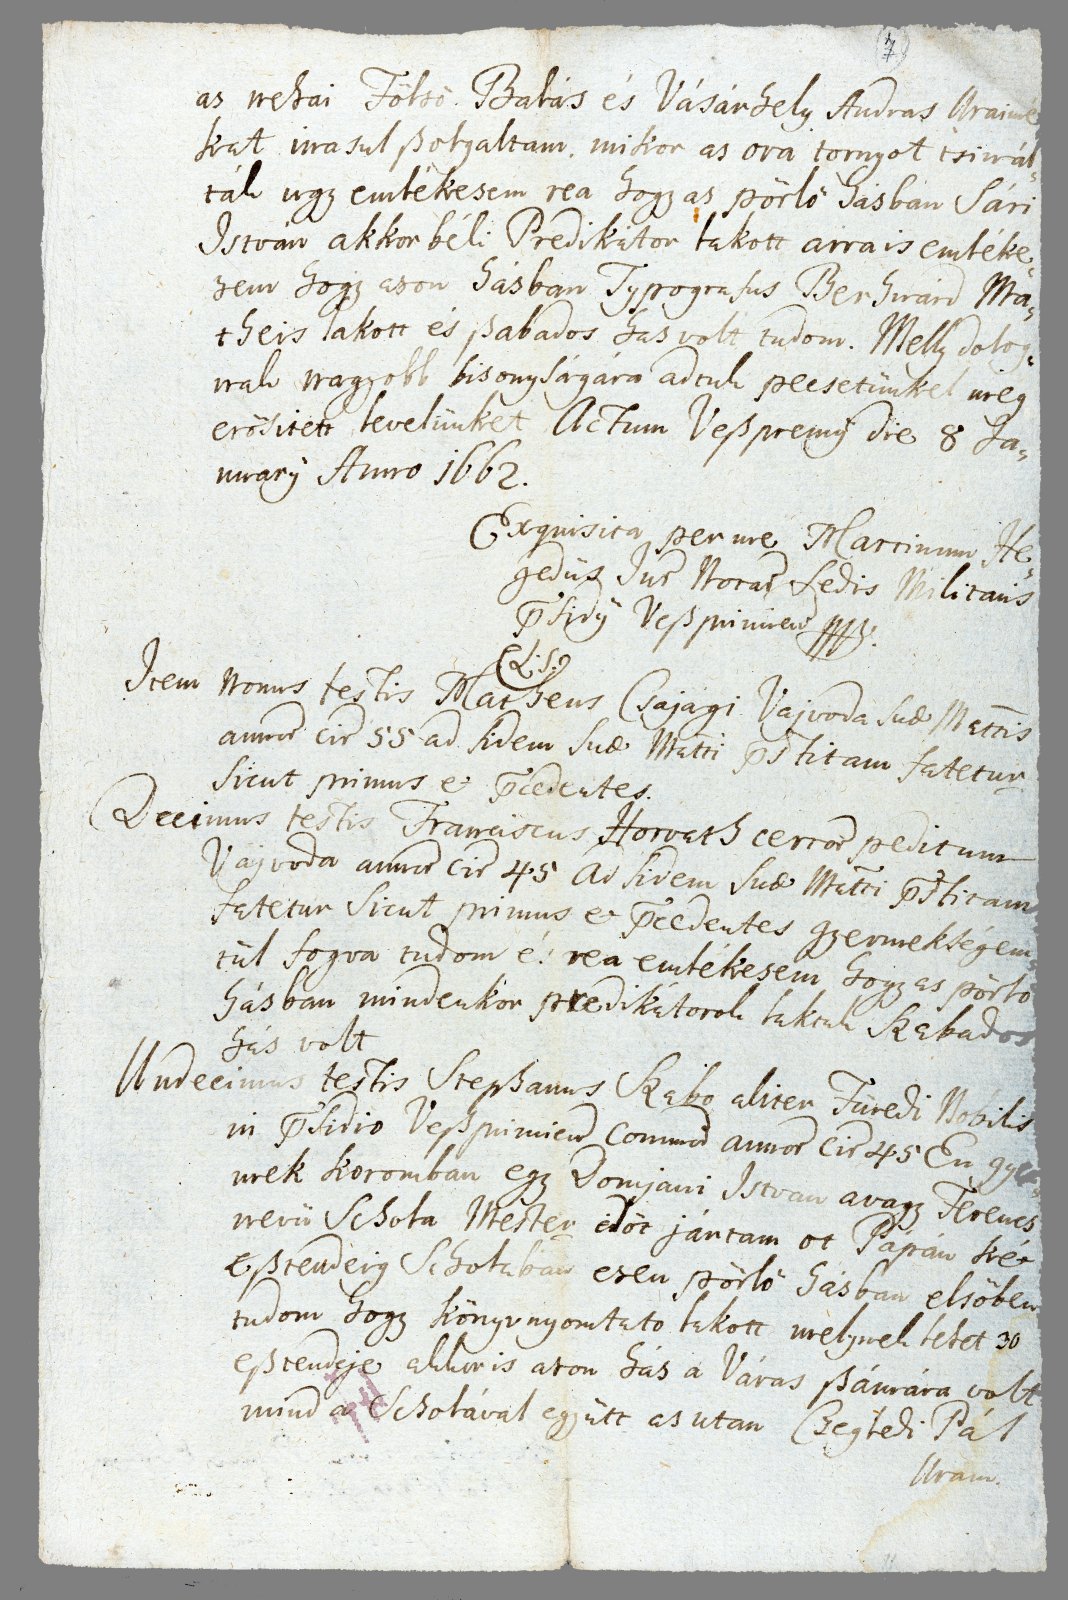 7
az nehai Fölső Balás és Vásárhely András Uraimé
kat inasul ßolgaltam. mikor az ora tornyot tsinál-
ták ugy emlékezem rea hogy az pörlő házban Sári
István akkor béli Predikátor lakott arra is emléke-
zem hogy azon házban Typografus Bernhárd Ma-
theis lakott és ßabados ház volt tudom. Melly dolog-
nak nagyobb bizonyságára adtuk pecsetünkel meg
erősitett levelünket Actum Veßpremÿ die 8 Ja-
nuarÿ Anno 1662.
Exquisita per me Martinum He-
gedűs Jur Notar Sedis Militaris
Psidÿ Veßprimien
(L.S.)
Item Nonus testis Matheus Csajági Vajvoda suæ Mattis
annor cir 55 ad fidem suæ Matti pstitam fatetur
sicut primus et pcedentes.
Decimus testis Franciscus Horvath certor peditum
Vajvoda annor cir 45 Ad fidem suæ Matti pstitam
fatetur sicut primus et pcedentes gyermekségem-
tűl fogva tudom é! rea emlékezem hogy az pörlő
házban mindenkor predikátorok laktak Szabados
ház volt
Undecimus testis Stephanus Szabo aliter Füredi Nobilis
in psidio Veßprimien Commor annor Cir 45 Én gyer-
mek koromban egy Domjani Istvan avagy Ferencz
nevü Schola Mester előt jártam ot Pápán két
eßtendeig Scholában ezen pörlő házban elsőben
tudom hogy könyvnyomtato lakott melynek lehet 30
eßtendeje akkor is azon ház a Város ßámára volt
mind a Scholával együtt az utan Czeglédi Pál
Uram.